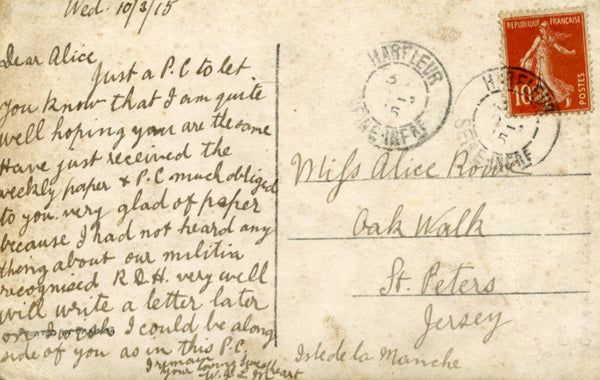 Wed. 10/3/15
Dear Alice
Just a P.C to let
you know that I am quite
well hoping you are the same
Have just received the
weekly paper & P.C much obliged
to you very glad of paper
because I had not heard any
thing about our militia
recognised R.D.H. very well
will write a letter later
on I wish I could be along
side of you as in this P.C.
I remain
your loving
REPUBLIQUE FRANÇAISE
10
POSTES
HARFLEUR
SEINE-INFRE
HARFLEUR
SEINE-INFRE
Miss Alice
Oak Walk
St. Peters
Jersey
Isle de la Manche